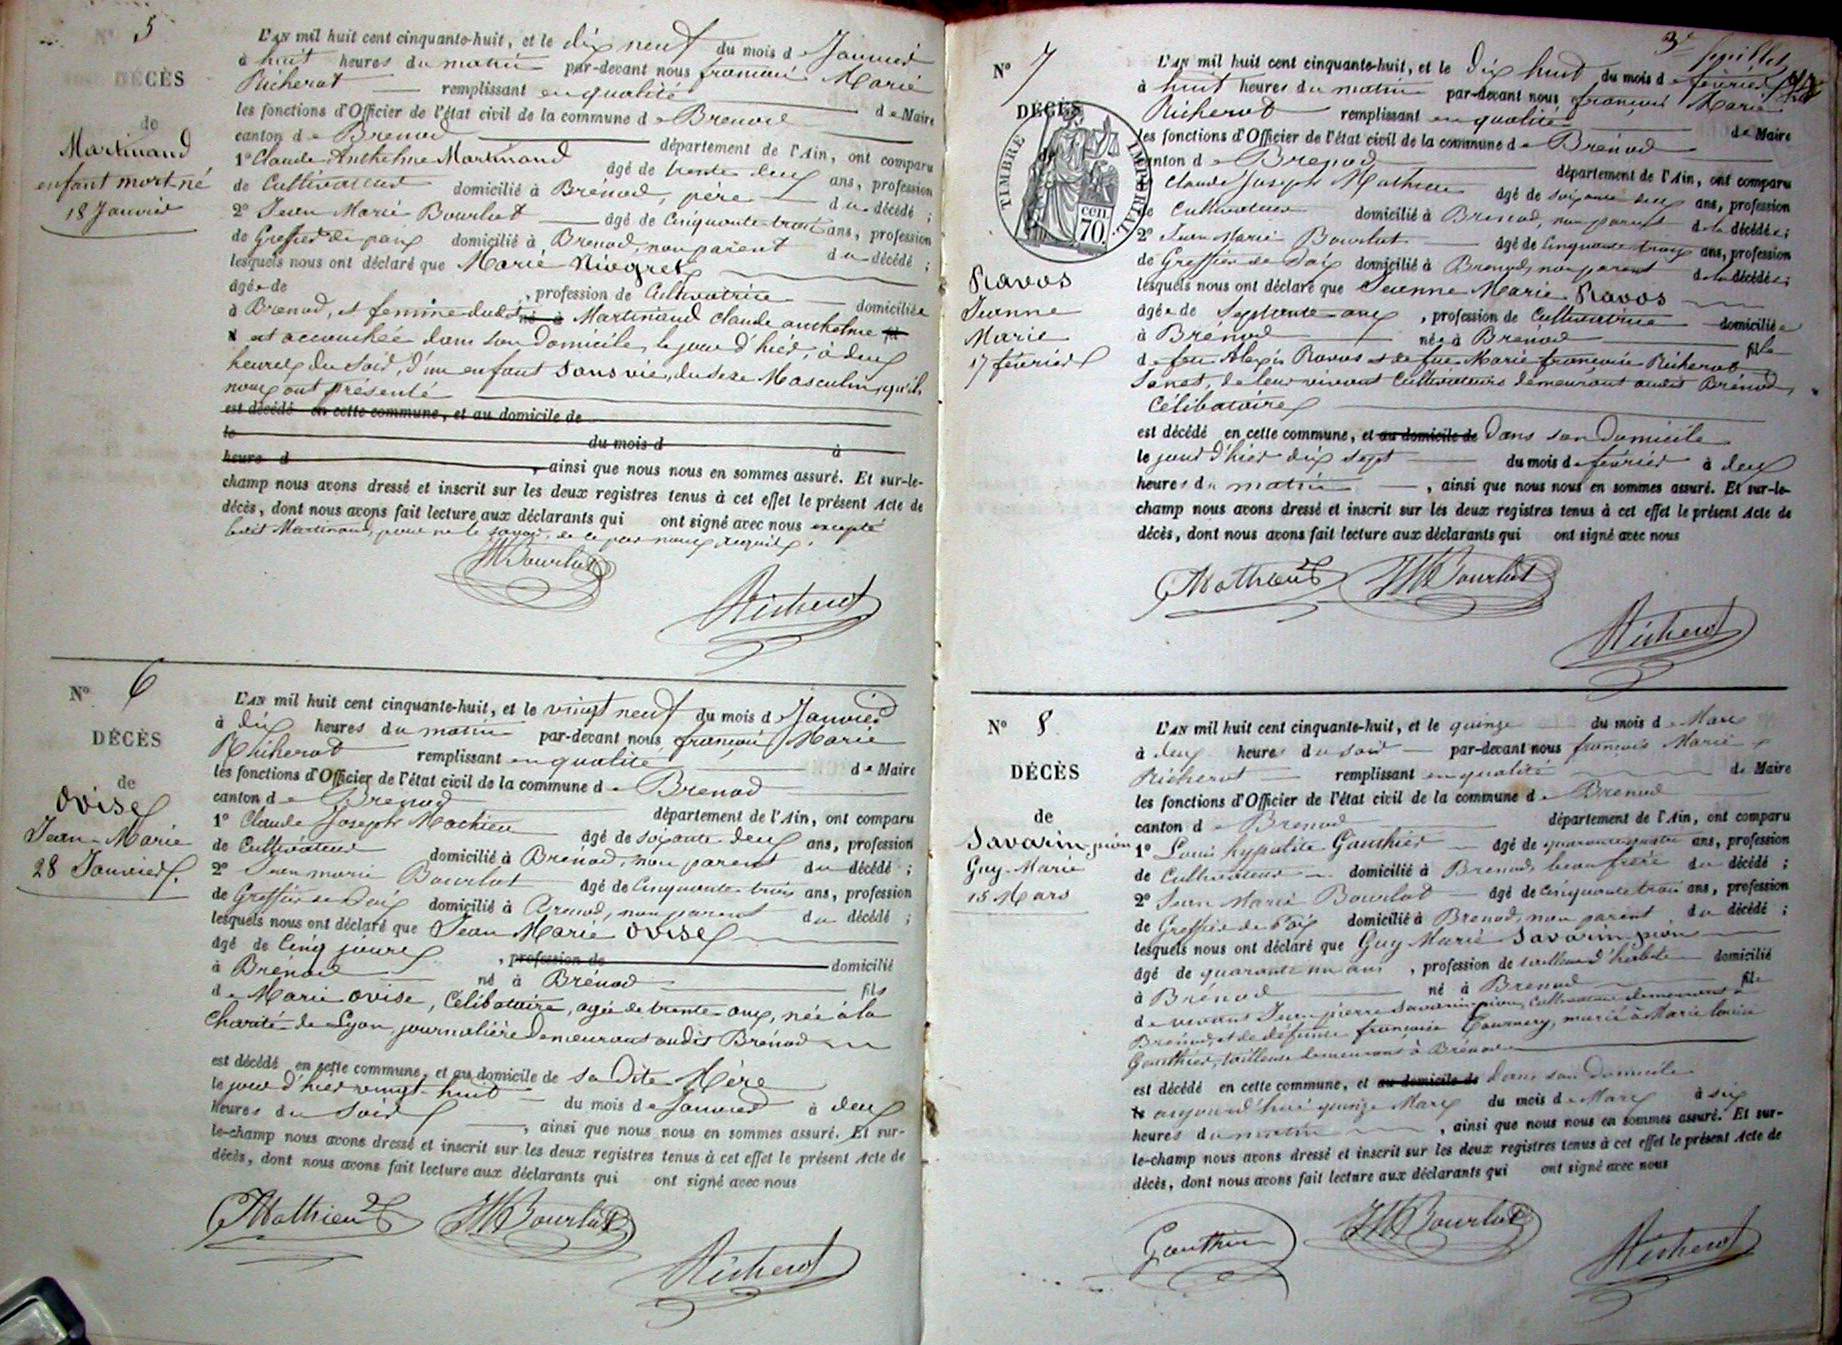 N° 5
DÉCÈS
de
Martinand
enfant mort né
18 Janvier
L'AN mil huit cent cinquante-huit, et le dix neuf du mois de Janvier
à huit heures du matin par-devant nous françois Marie
Richerot remplissant en qualité de Maire
les fonctions d'Officier de l'état civil de la commune de Brenod
canton de Brenod département de l'Ain, ont comparu
1° Claude Anthelme Martinand âgé de trente deux ans, profession
de Cultivateur domicilié à Brénod, père du décédé ;
2° Jean Marie Bourlot âgé de Cinquante-trois ans, profession
de Greffier de paix domicilié à Brenod, non parent du décédé ;
lesquels nous ont déclaré que Marie Niogret
âgée de , profession de Cultivatrice domiciliée
à Brenod, et femme dudit né à Martinand Claude anthelme fil
est accouchée dans son domicile, le jour d'hier, à deux
heures du soir, d'un enfant sans vie, du sexe Masculin, qu'ils
nous ont présenté
est décédé en cette commune, et au domicile de
le du mois d à
heure d , ainsi que nous nous en sommes assuré. Et sur-le-
champ nous avons dressé et inscrit sur les deux registres tenus à cet effet le présent Acte de
décès, dont nous avons fait lecture aux déclarants qui ont signé avec nous excepté
ledit Martinand, pour ne le savoir, de ce par nous requis.
JM Bourlot
Richerot
N° 6
DÉCÈS
de
Ovise
Jean-Marie
28 Janvier
L'AN mil huit cent cinquante-huit, et le vingt neuf du mois de Janvier
à dix heures du matin par-devant nous françois Marie
Richerot remplissant en qualité de Maire
les fonctions d'Officier de l'état civil de la commune de Brenod
canton de Brenod département de l'Ain, ont comparu
1° Claude Joseph Mathieu âgé de soixante deux ans, profession
de Cultivateur domicilié à Brénod, non parent du décédé ;
2° Jean marie Bourlot âgé de Cinquante-trois ans, profession
de Greffier de Paix domicilié à Brenod, non parent du décédé ;
lesquels nous ont déclaré que Jean Marie Ovise
âgé de Cinq jours , profession de domicilié
à Brénod né à Brénod fils
de Marie Ovise, Célibataire, agée de trente ans, née à la
Charité de Lyon, journalière demeurant audit Brénod
est décédé en cette commune, et au domicile de sa Dite Mère
le jour d'hier vingt-huit du mois de Janvier à deux
heures du Soir , ainsi que nous nous en sommes assuré. Et sur-
le-champ nous avons dressé et inscrit sur les deux registres tenus à cet effet le présent Acte de
décès, dont nous avons fait lecture aux déclarants qui ont signé avec nous
Mathieu JM Bourlot
Richerot
3e feuillet
N° 7
DÉCÈS
de
TIMBRE IMPÉRIAL
70 CEN.
Ravos
Jeanne
Marie
17 février
L'AN mil huit cent cinquante-huit, et le dix huit du mois de février
à huit heures du matin par-devant nous françois Marie
Richerot remplissant en qualité de Maire
les fonctions d'Officier de l'état civil de la commune de Brénod
canton de Brenod département de l'Ain, ont comparu
Claude Joseph Mathieu âgé de soixante deux ans, profession
de Cultivateur domicilié à Brenod, non parent de la décédée ;
2° Jean Marie Bourlot âgé de Cinquante trois ans, profession
de Greffier de Paix domicilié à Brenod, non parent de la décédée ;
lesquels nous ont déclaré que Jeanne Marie Ravos
âgée de septante ans , profession de Cultivatrice domiciliée
à Brénod née à Brénod fille
de feu Alexis Ravos et de fue Marie françoise Richerot
Janet, de leur vivant Cultivateurs demeurant audit Brénod,
Célibataire
est décédé en cette commune, et au domicile de dans son domicile
le jour d'hier dix sept du mois de février à deux
heures du matin , ainsi que nous nous en sommes assuré. Et sur-le-
champ nous avons dressé et inscrit sur les deux registres tenus à cet effet le présent Acte de
décès, dont nous avons fait lecture aux déclarants qui ont signé avec nous
Mathieu JM Bourlot
Richerot
N° 8
DÉCÈS
de
Savarin pion
Guy-Marie
15 Mars
L'AN mil huit cent cinquante-huit, et le quinze du mois de Mars
à deux heures du soir par-devant nous françois Marie
Richerot remplissant en qualité de Maire
les fonctions d'Officier de l'état civil de la commune de Brenod
canton de Brenod département de l'Ain, ont comparu
1° Louis hypolite Gauthier âgé de quarante quatre ans, profession
de Cultivateur domicilié à Brenod, beau frère du décédé ;
2° Jean Marie Bourlot âgé de Cinquante trois ans, profession
de Greffier de Paix domicilié à Brenod, non parent du décédé ;
lesquels nous ont déclaré que Guy Marie Savarin pion
âgé de quarante un ans , profession de domicilié
à Brénod né à Brenod fils
de vivant Jean pierre Savarin-pion, Cultivateur demeurant à
Brenod, et de défunte françoise Tournery, marié à Marie louise
Gauthier, tailleuse demeurant à Brénod
est décédé en cette commune, et au domicile de dans son domicile
le aujourd'hui quinze Mars du mois de Mars à six
heures du matin , ainsi que nous nous en sommes assuré. Et sur-
le-champ nous avons dressé et inscrit sur les deux registres tenus à cet effet le présent Acte de
décès, dont nous avons fait lecture aux déclarants qui ont signé avec nous
Gauthier JM Bourlot
Richerot